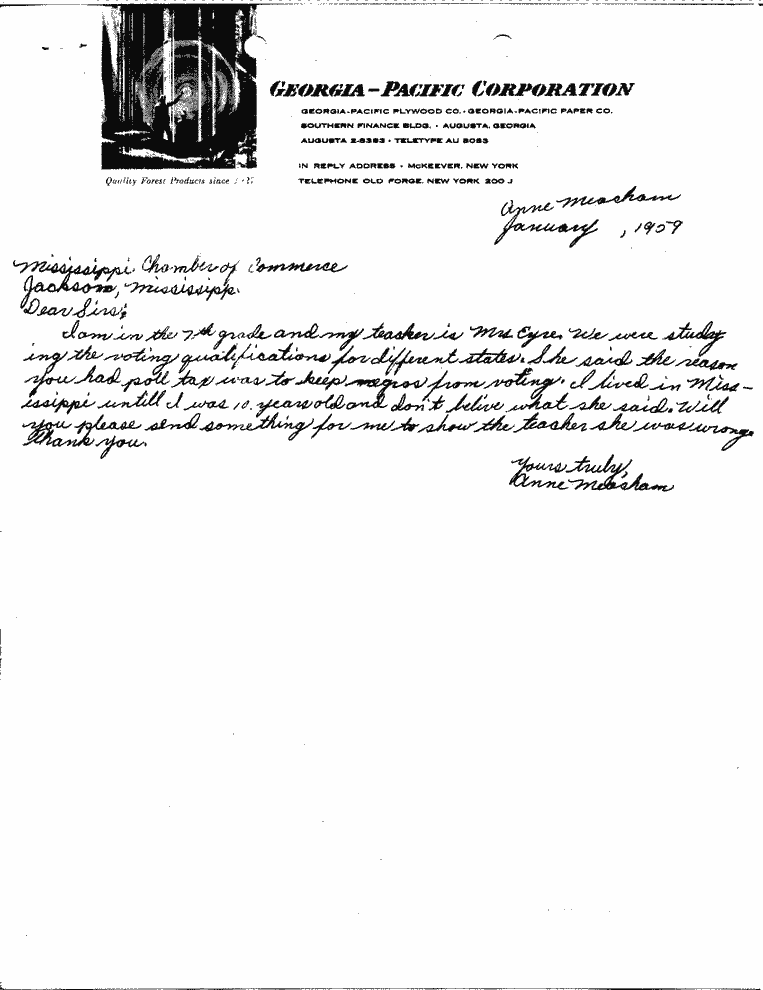 GEORGIA-PACIFIC CORPORATION
GEORGIA-PACIFIC PLYWOOD CO. · GEORGIA-PACIFIC PAPER CO.
SOUTHERN FINANCE BLDG. · AUGUSTA, GEORGIA
AUGUSTA 2-8383 · TELETYPE AU 8083
IN REPLY ADDRESS · McKEEVER, NEW YORK
TELEPHONE OLD FORGE, NEW YORK 200 J
Quality Forest Products since
Anne Measham
January , 1959
Mississippi Chamber of Commerce
Jackson, Mississipp.
Dear Sirs;
I am in the 7th grade and my teacher is Mrs. Eyre. We were study
ing the voting qualifications for different states. She said the reason
you had poll tax was to keep negros from voting. I lived in Miss-
issippi untill I was 10 years old and don't belive what she said. Will
you please send something for me to show the teacher she was wrong.
Thank you.
Yours truly,
Anne Measham